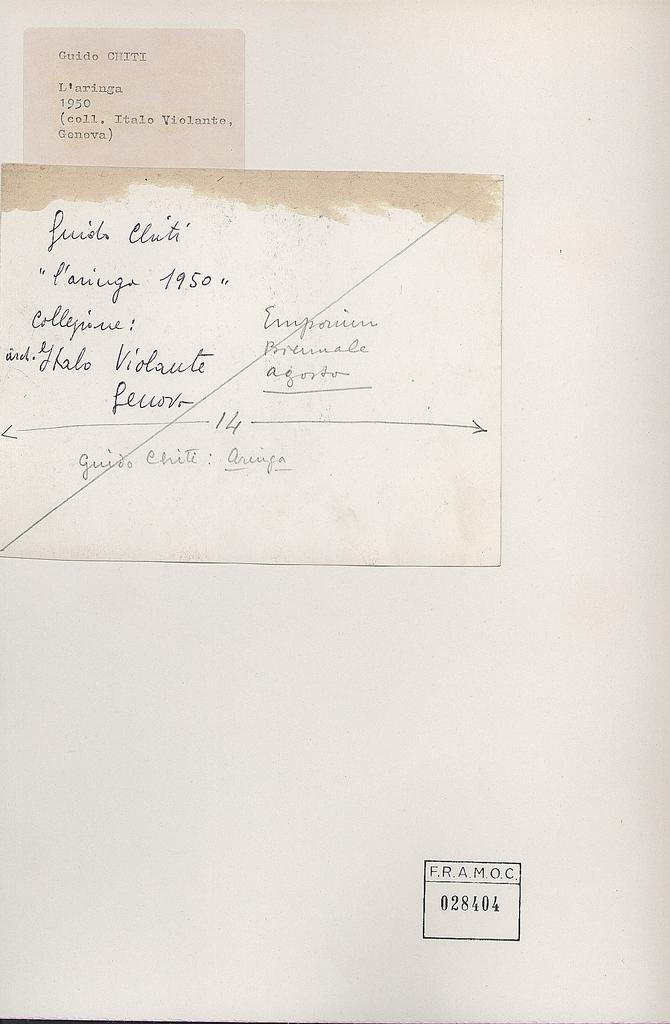 Guido CHITI
L'aringa
1950
(coll. Italo Violante,
Genova)
Guido Chiti
"l'aringa 1950"
collezione:
arch. Italo Violante
Genova
Emporium
Biennale
agosto
14
Guido Chiti: Aringa
F.R.A.M.O.C.
028404